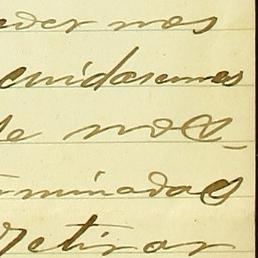 eder nos
cuidaremos
se nos-
rminadas
retirar